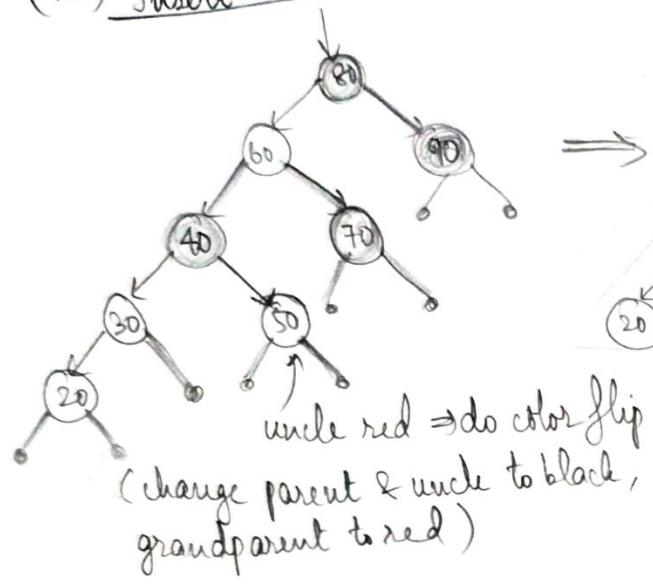 Insert
80
60
90
40
70
30
50
20
20
uncle red ⇒ do color flip
(change parent & uncle to black,
grandparent to red)